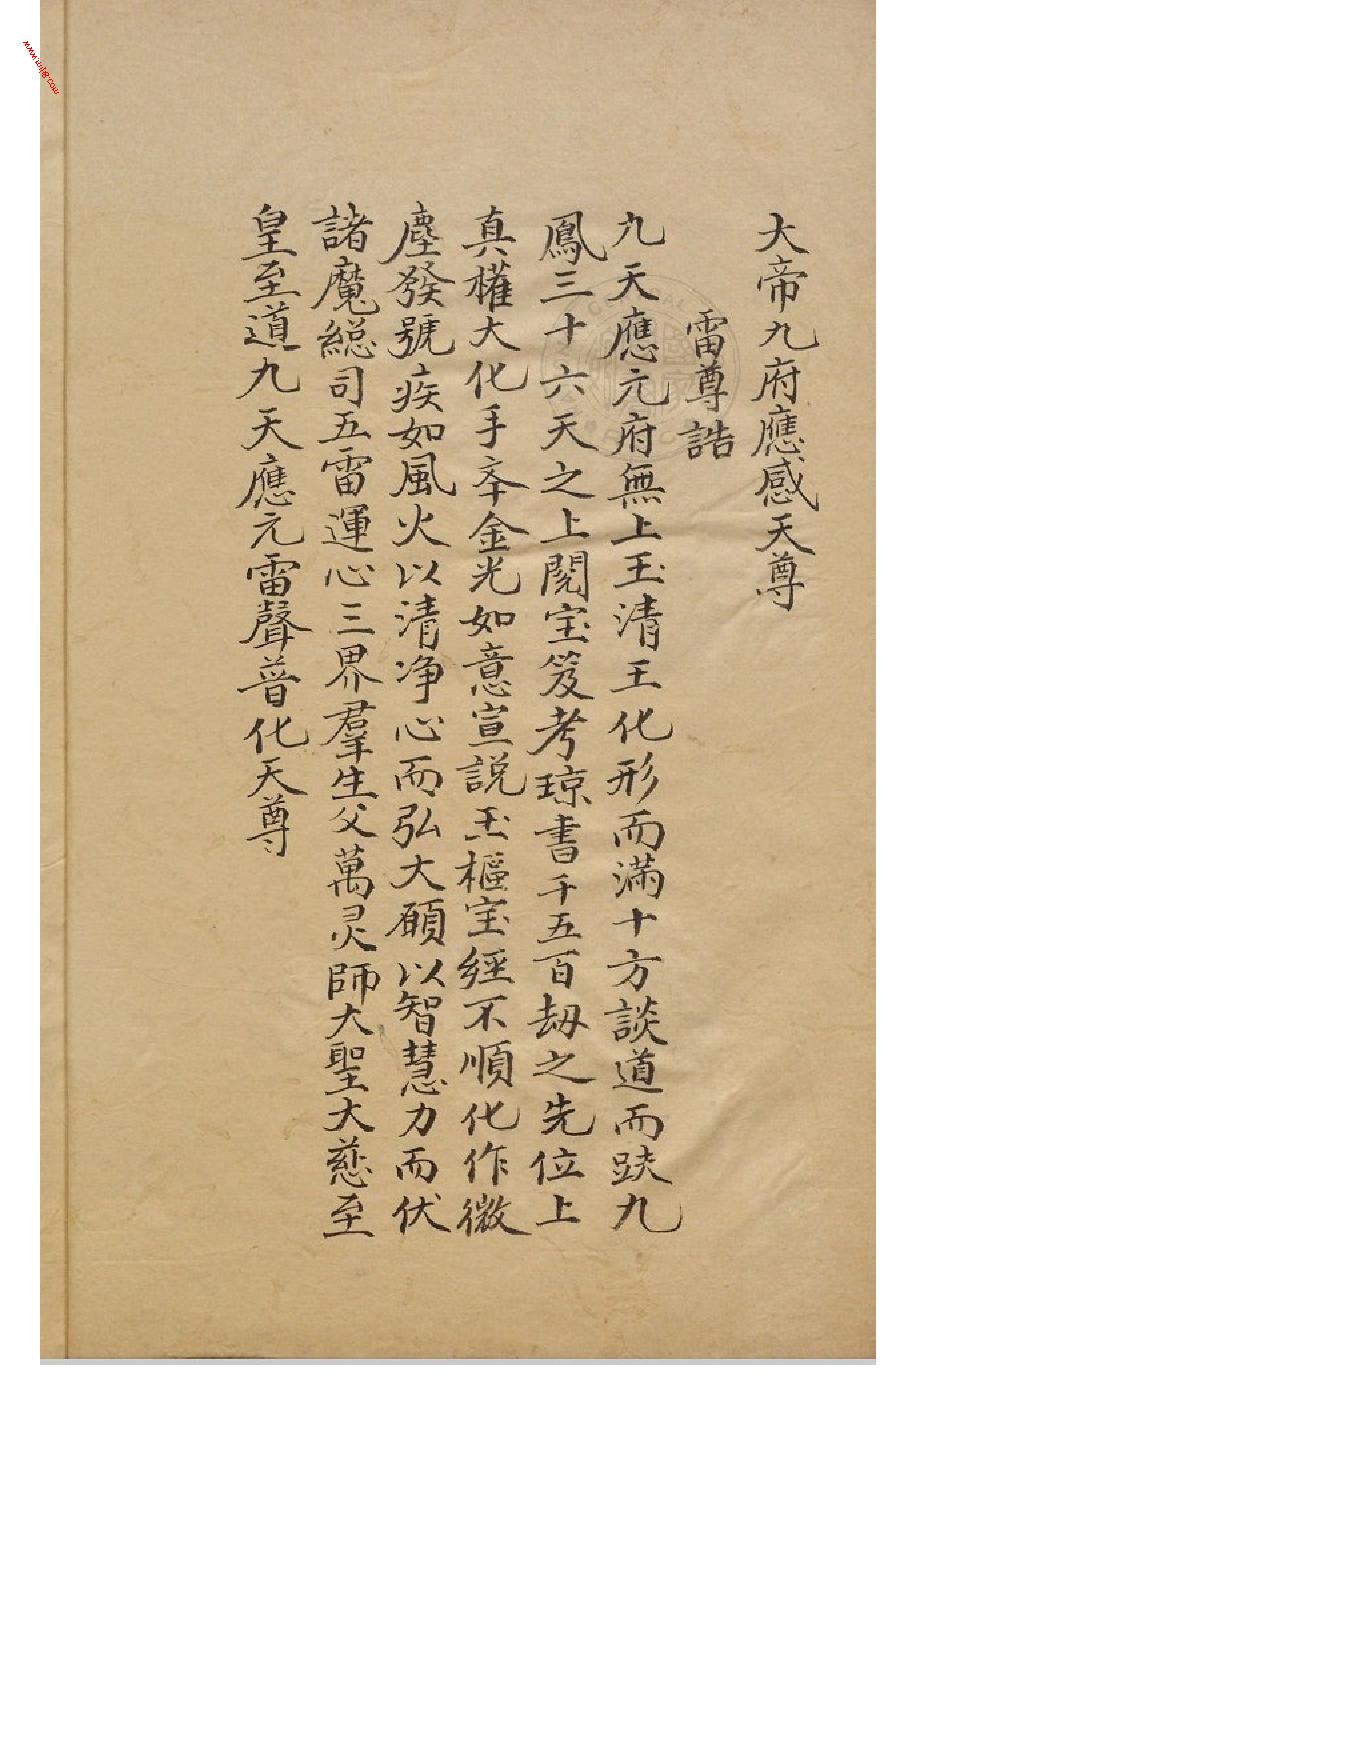 大帝九府應感天尊
雷尊誥
九天應元府無上玉清王化形而滿十方談道而趺九
鳳三十六天之上閱宝笈考琼書千五百劫之先位上
真權大化手夲金光如意宣説玉樞宝經不順化作微
塵發號疾如風火以清净心而弘大願以智慧力而伏
諸魔緫司五雷運心三界羣生父萬灵師大聖大慈至
皇至道九天應元雷聲普化天尊